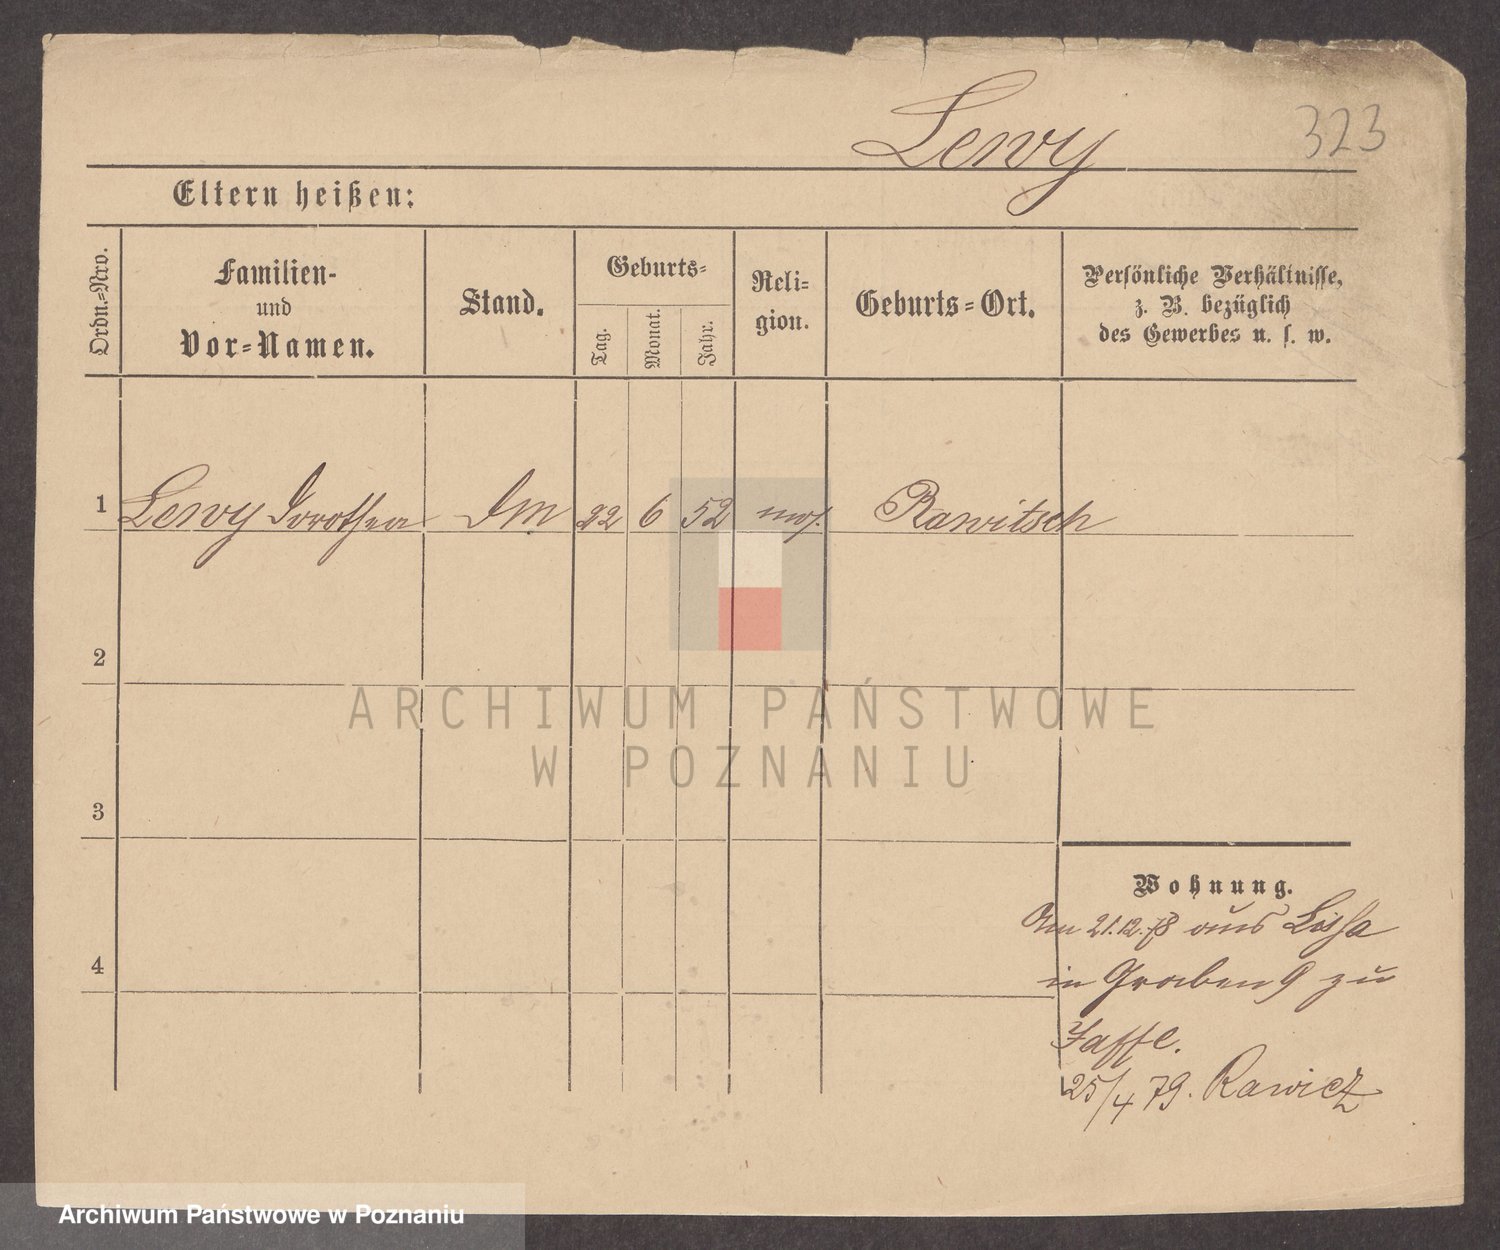 Lewy
323
Eltern heißen:
Ordn.=Nro.
Familien-
und
Vor=Namen.
Stand.
Geburts=
Tag.
Monat.
Jahr.
Reli-
gion.
Geburts=Ort.
Persönliche Verhältnisse,
z. B. bezüglich
des Gewerbes u. s. w.
1 Lewy Dorothea 22 6 52 mos. Rawitsch
2
3
4
Wohnung.
Am 21.12.78 aus Lissa
in Graben 9 zu
Jaffe.
25/4 79. Rawicz
ARCHIWUM PAŃSTWOWE
W POZNANIU
Archiwum Państwowe w Poznaniu